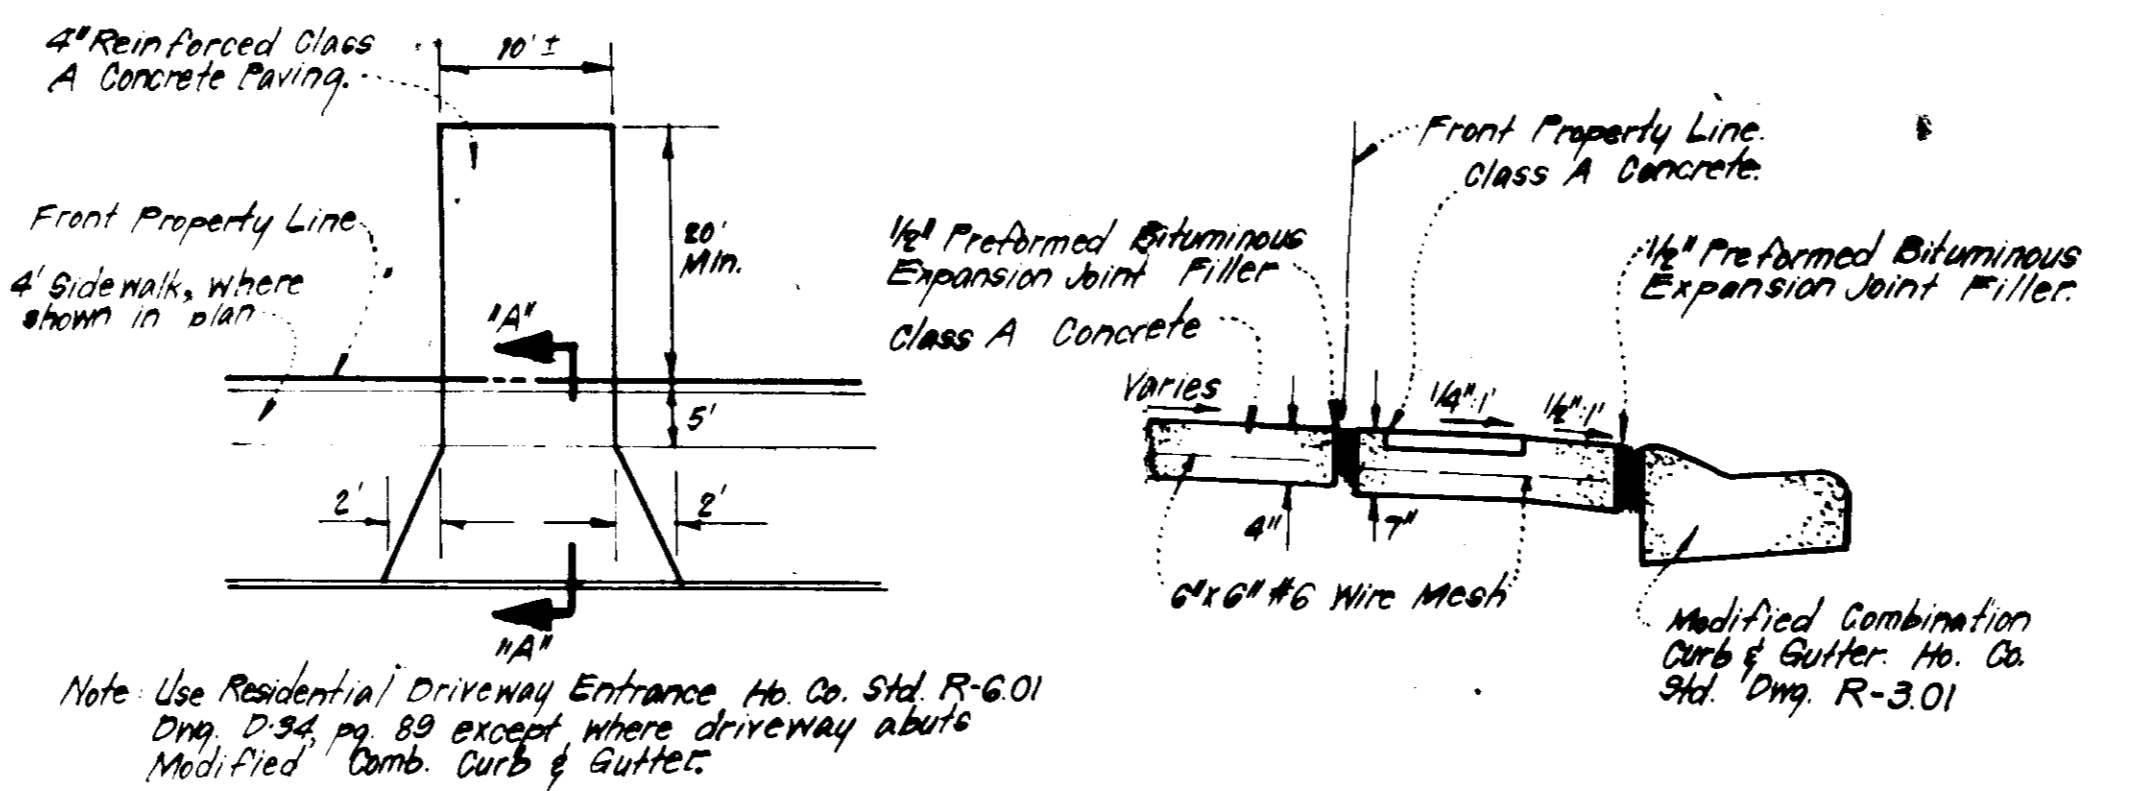 4" Reinforced Class
A Concrete Paving.
10' ±
Front Property Line
4' Sidewalk, where
shown in plan
20'
Min.
"A"
5'
2'
2'
"A"
Note: Use Residential Driveway Entrance, Ho. Co. Std. R-6.01
Dwg. D-34, pg. 89 except where driveway abuts
Modified Comb. Curb & Gutter.
Front Property Line.
Class A Concrete.
1/2" Preformed Bituminous
Expansion Joint Filler
Class A Concrete
1/2" Preformed Bituminous
Expansion Joint Filler.
Varies
1/4":1'
1/2":1'
4"
7"
6"x6" #6 Wire Mesh
Modified Combination
Curb & Gutter. Ho. Co.
Std. Dwg. R-3.01